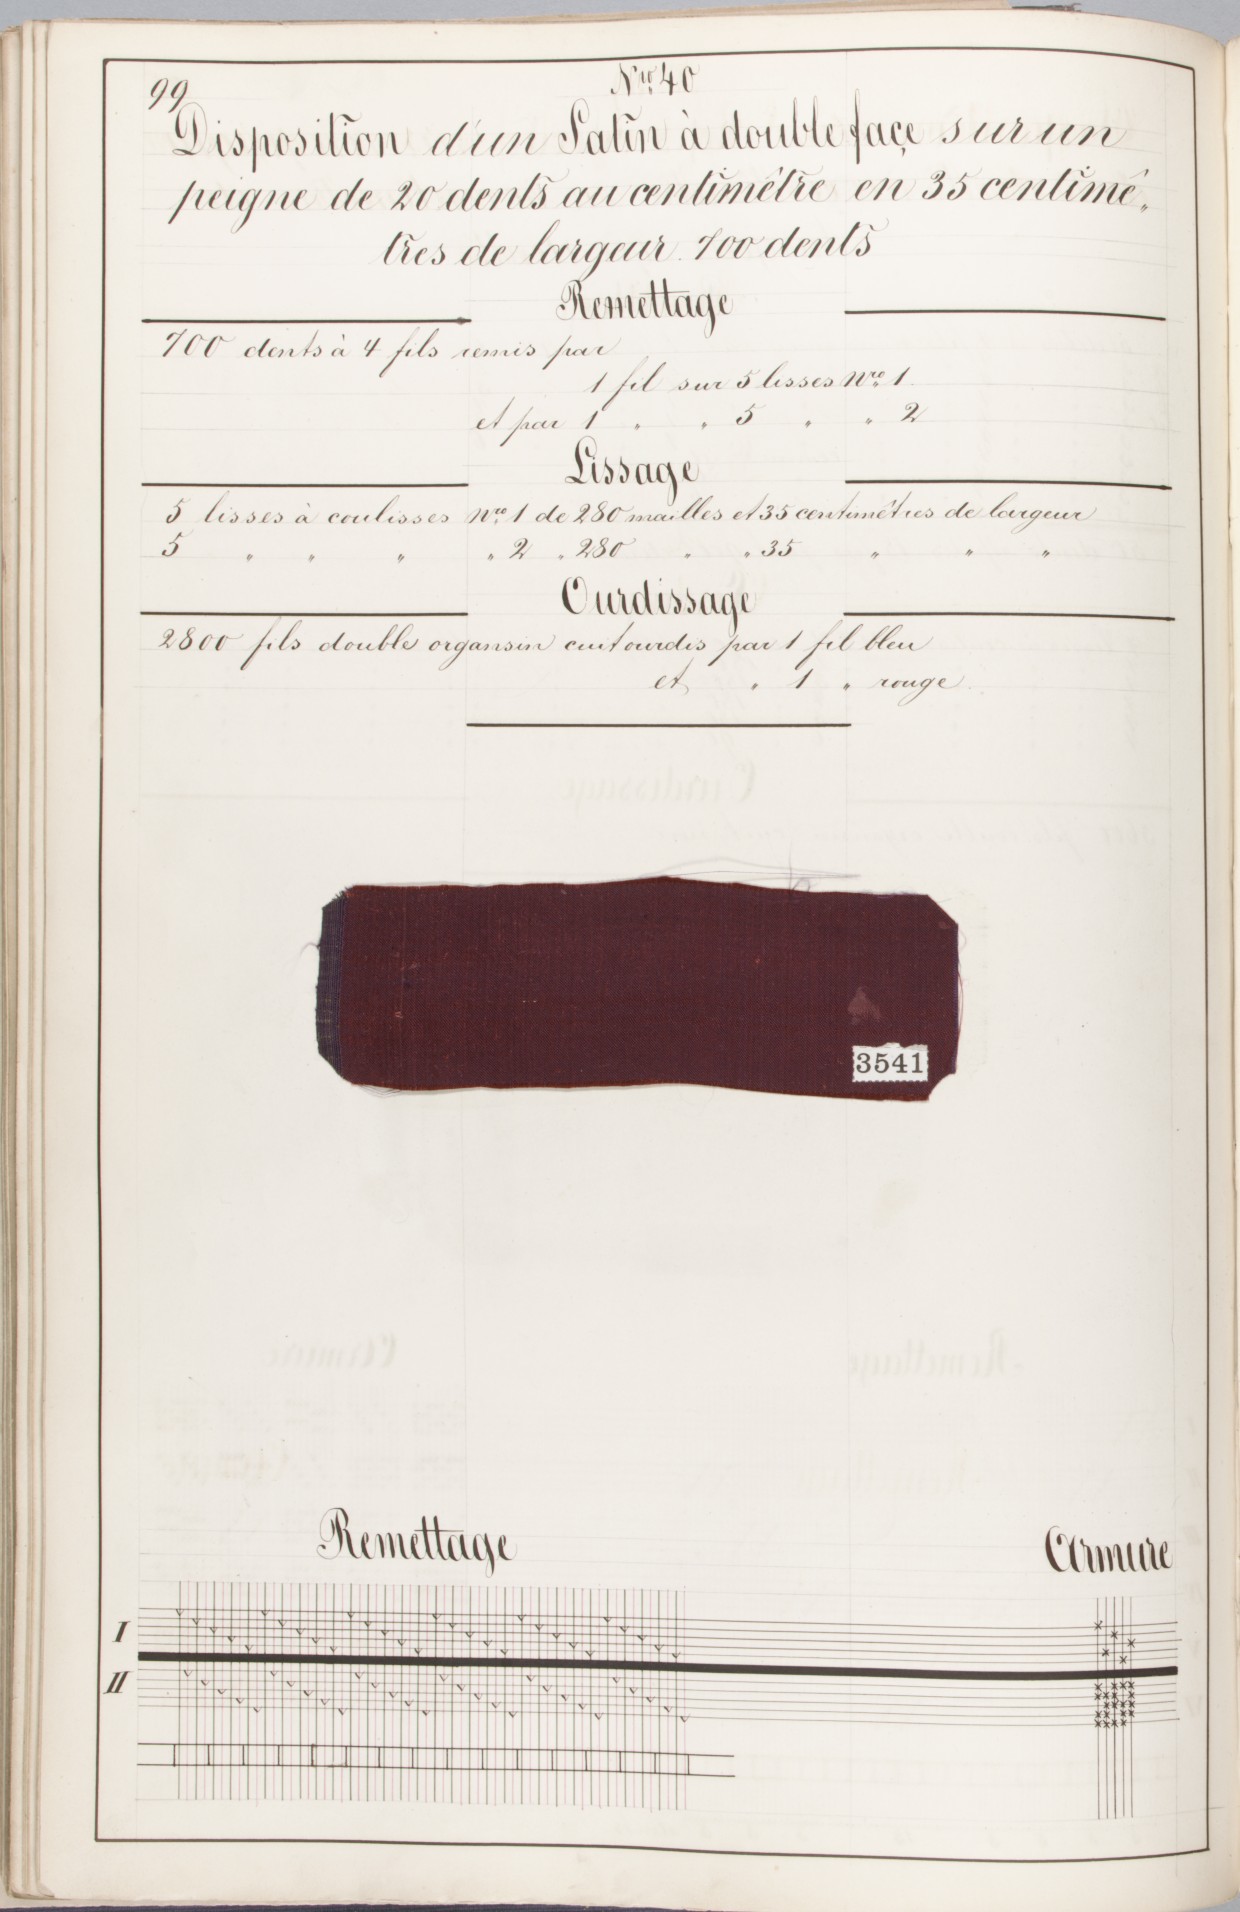 99
Nro 40
Disposition d'un Satin à double façe sur un
peigne de 20 dents au centimêtre en 35 centimê„
tres de largeur. 700 dents
Remettage
700 dents à 4 fils remis par
1 fil sur 5 lisses Nro 1.
et par 1 „ „ 5 „ „ 2
Lissage
5 lisses à coulisses Nro 1 de 280 mailles et 35 centimêtres de largeur
5 „ „ „ „ 2 „ 280 „ „ 35 „ „ „
Ourdissage
2800 fils double organsin cuit ourdis par 1 fil bleu
et „ 1 „ rouge.
3541
Remettage
Armure
I
II